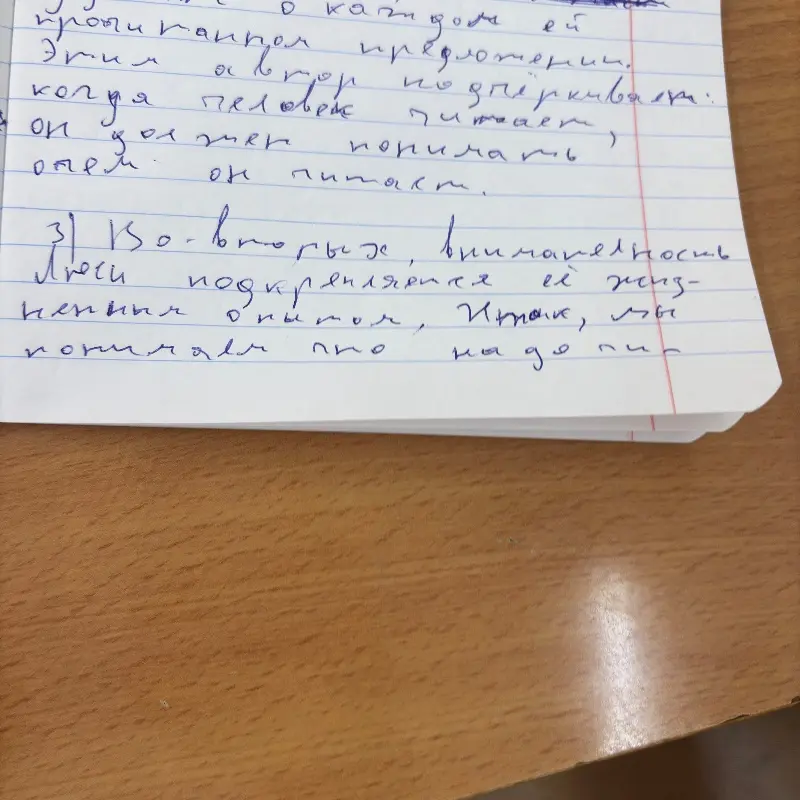 о каждом ей
прочитанном предложении.
Этим автор подчёркивает:
когда человек читает,
он должен понимать
о чем он читает.
3) Во-вторых, внимателность
Люси подкрепляется её жиз-
ненным опытом, Итак, мы
понимаем что надо чит